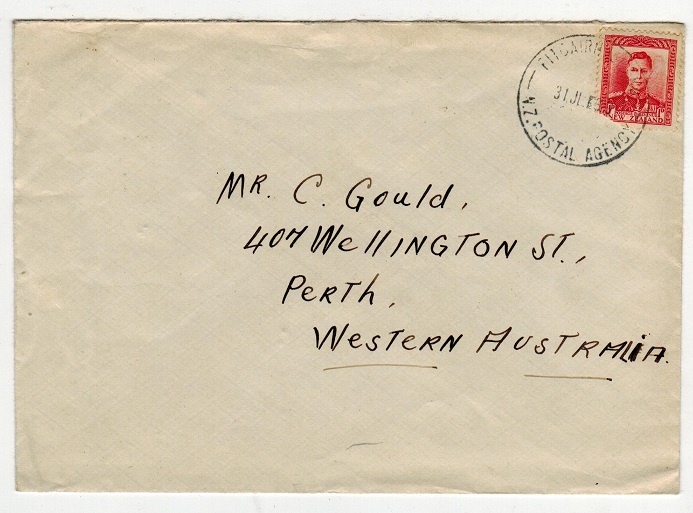 PITCAIRN
31 JL
N.Z. POSTAL AGENCY
NEW ZEALAND
Mr. C. Gould,
407 WellINGTON ST.,
PeRTH,
WeSTeRN AUSTRALiA.